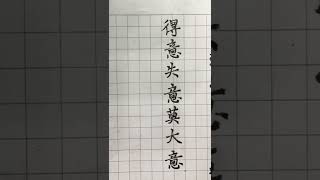 得意失意莫大意